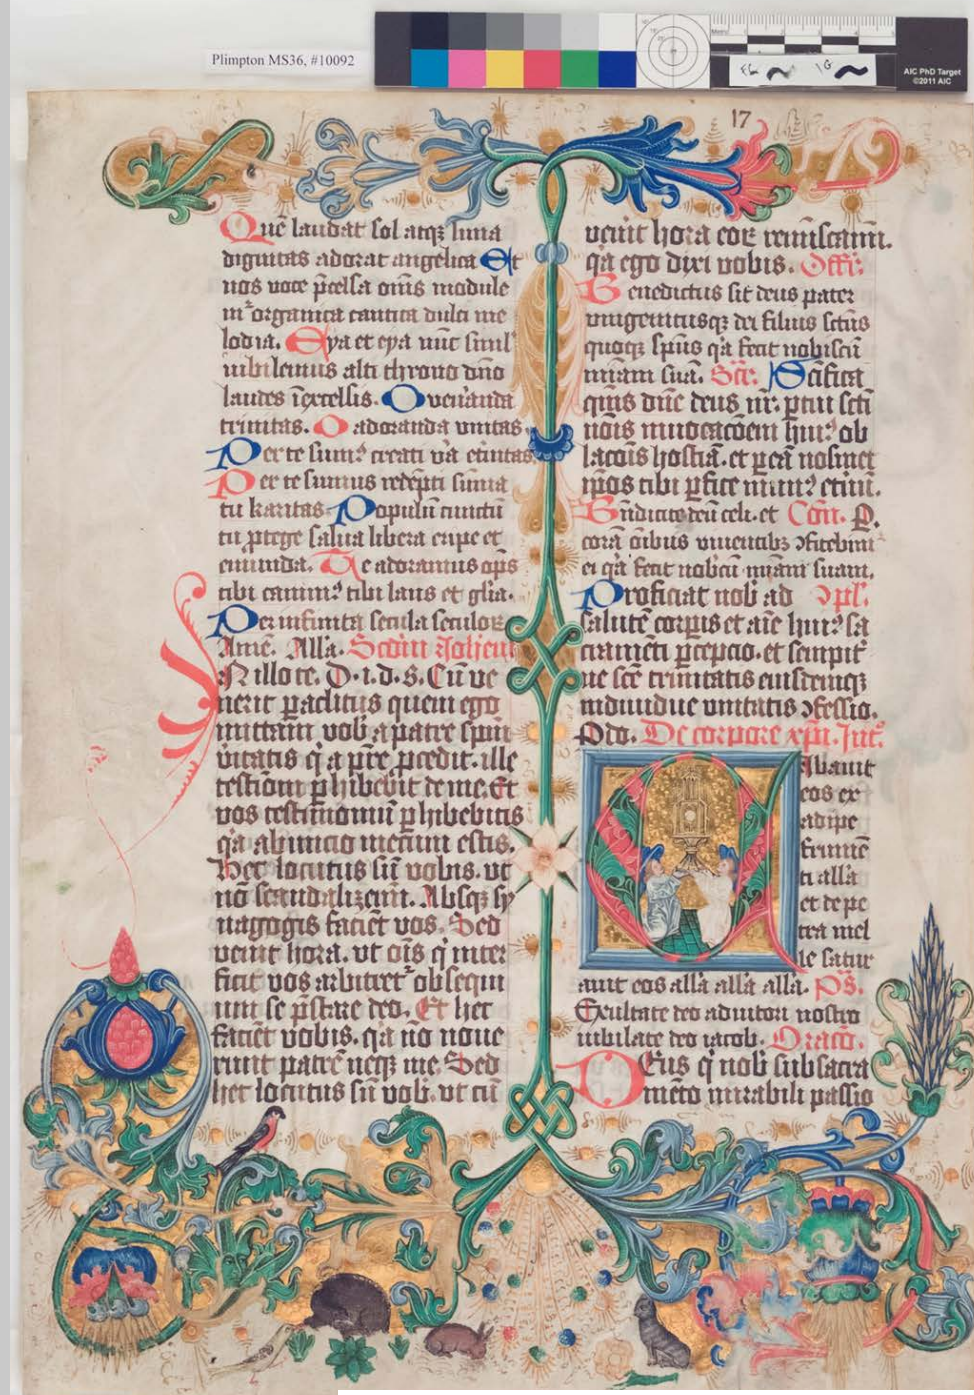 Plimpton MS36, #10092
AIC PhD Target
©2011 AIC
17
Quē laudat sol atqꝫ luna
dignitas adorat angelica Et
nos voce p̄celsa om̄s module
m᷑ organica cantica dulci me
lodia. Eya et eya nūc siml᷑
iubilemus alti throno dn̄o
laudes ī excelsis. O veneranda
trinitas. O adoranda vnitas
Per te sumꝰ creati va et̄nitas
Per te sumus redēpti sūma
tu karitas. Populū cunctū
tu ꝓtege salua libera eripe et
emunda. Te adoramus om̄ps
tibi canimꝰ tibi laus et gl̄ia.
Per infinita secula seculoꝝ
Amē. All̄a. Scd̄m Joh̄em
N illo tē. D. i. d. s. Cū ve
nerit ꝑaclitus quem ego
mittam vob̄ a patre spm̄
v̄itatis q̄ a pr̄e ꝓcedit. ille
testiōm ꝑhibebit de me. Et
vos testimoniū ꝑhibebitis
q̄a ab inicio mecum estis.
Hec locutus sū vobis. vt
nō scandalizem̄. Absqꝫ sy
nagogis faciēt vos. Sed
venit hora. vt om̄s q̄ inter
ficit vos arbitret᷑ obsequi
um se p̄stare deo. Et hec
faciēt vobis. q̄a nō noue
runt patrē neqꝫ me. Sed
hec locutus sū vob̄. vt cū
venit hora eoꝝ reminscam̄.
q̄a ego dixi vobis. Offr̄.
Benedictus sit deus pater
vnigenitusqꝫ dei filius sctūs
quoqꝫ spūs q̄a fecit nobiscū
mīam suā. Scr̄. Sc̄ifica
qūs dn̄e deus nr̄. ꝑ tui scti
nōis inuocacōem huiꝰ ob
lacōis hostiā. et ꝑ eā nosmet
ip̄os tibi ꝑfice munꝰ et̄nū.
Bn̄dicite deū celi. et Com̄. P.
corā om̄ibus viuentibꝫ ꝯfitebim᷑
ei q̄a fecit nob̄cū mīam suam.
Proficiat nob̄ ad ꝯpl̄.
salutē corpis et aīe huiꝰ sa
cramēti ꝑcepcio. et sempit᷑
ne scē trinitatis eiusdemqꝫ
indiuidue vnitatis ꝯfessio.
P dō. De corpore xp̄i. Intꝰ.
Cibauit
eos ex
adipe
frumē
ti all̄a
et de pe
tra mel
le satur
auit eos all̄a all̄a all̄a. Ps̄.
Exultate deo adiutori nostro
iubilate deo iacob. Oracō.
Deus q̄ nob̄ sub sacra
mēto mirabili passio